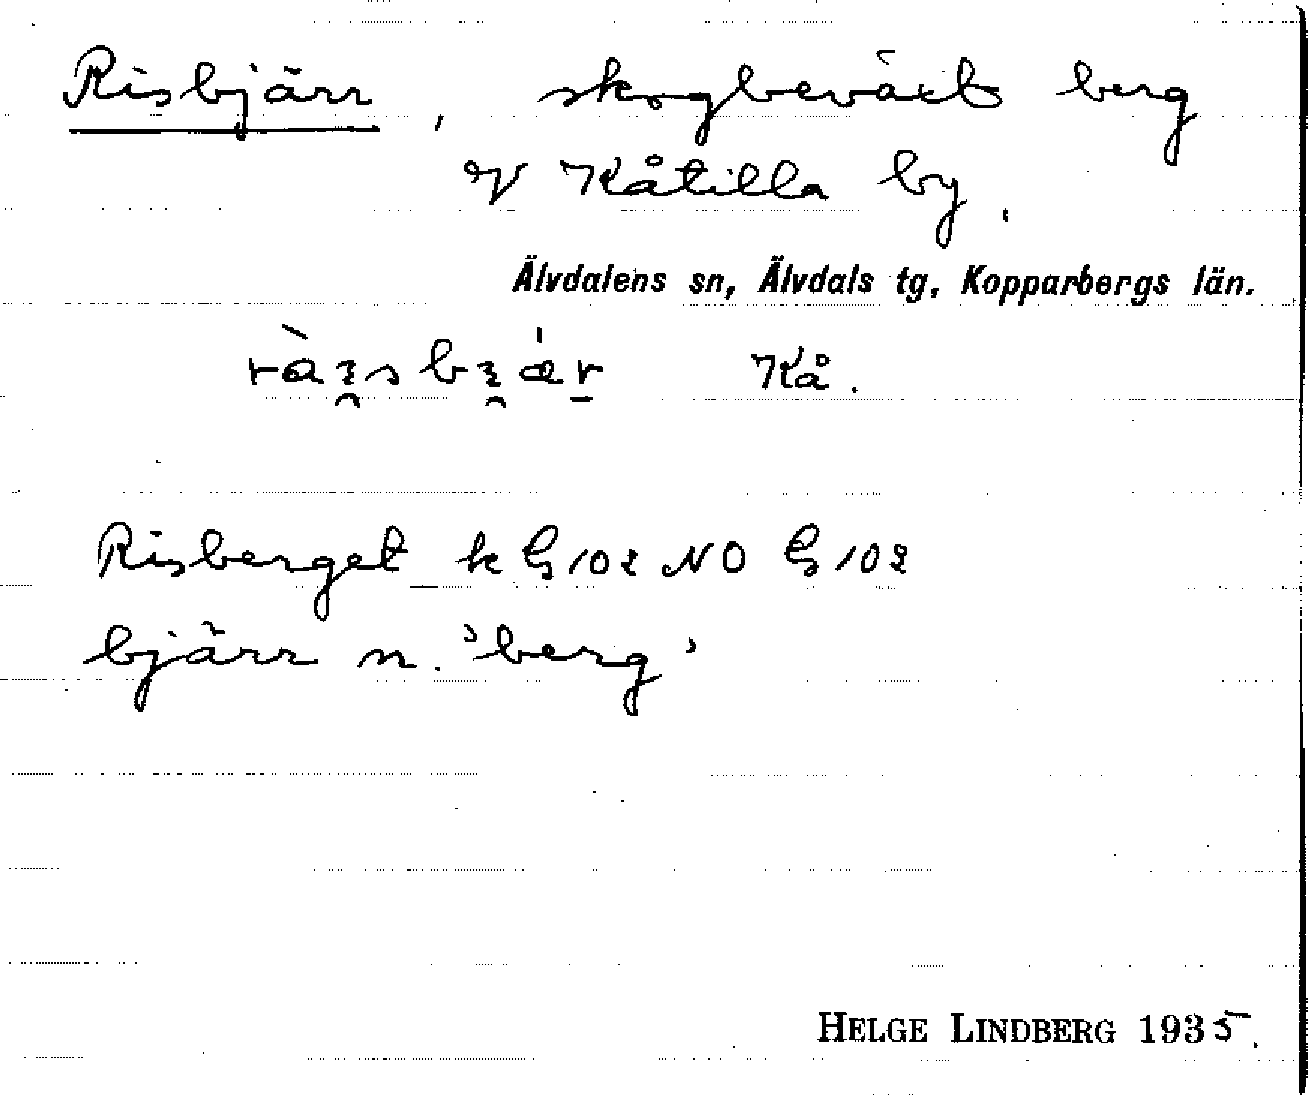 Risbjärr, skogbeväxt berg
V Kåtilla by.
Älvdalens sn, Älvdals tg, Kopparbergs län.
Kå.
Risberget k G 102 NO G 102
bjärr n. 'berg'
HELGE LINDBERG 1935.